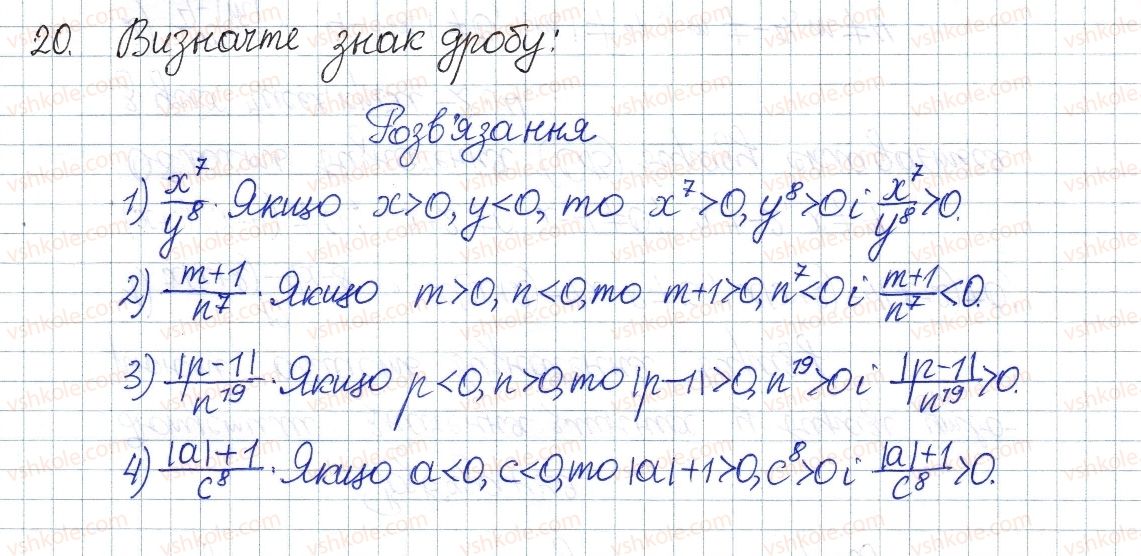 20. Визначте знак дробу:
Розв'язання
1) x⁷/y⁸. Якщо x>0, y<0, то x⁷>0, y⁸>0 і x⁷/y⁸>0.
2) m+1/n⁷. Якщо m>0, n<0, то m+1>0, n⁷<0 і m+1/n⁷<0.
3) |p-1|/n¹⁹. Якщо p<0, n>0, то |p-1|>0, n¹⁹>0 і |p-1|/n¹⁹>0.
4) |a|+1/c⁸. Якщо a<0, c<0, то |a|+1>0, c⁸>0 і |a|+1/c⁸>0.